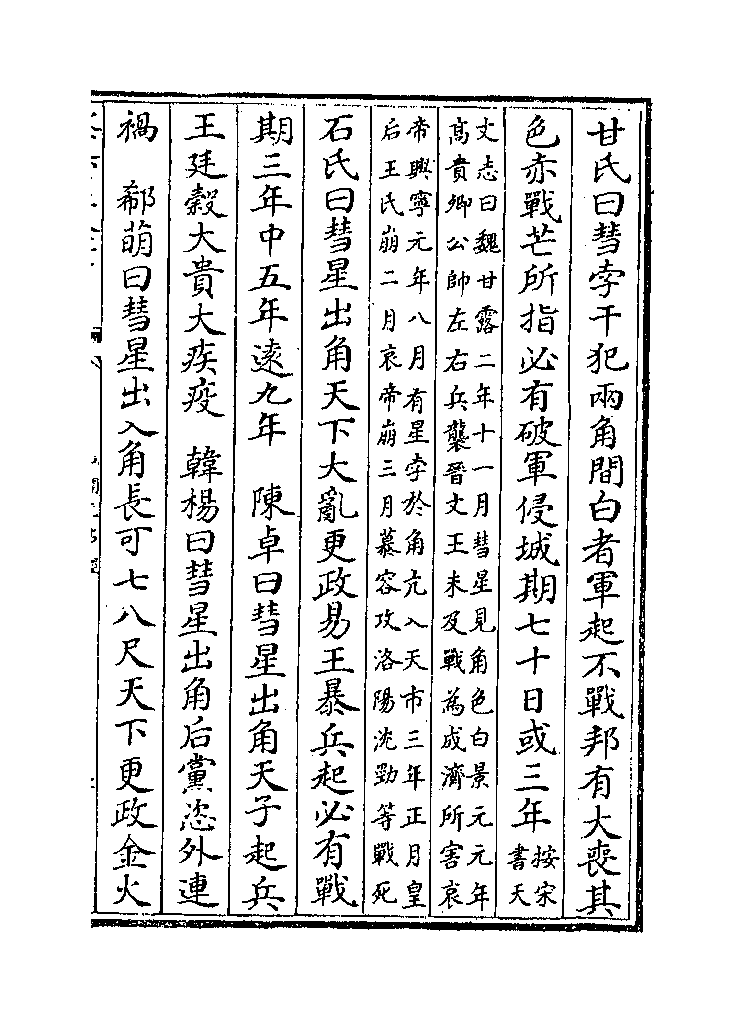 甘氏曰彗孛干犯兩角間白者軍起不戰邦有大喪其
色赤戰芒所指必有破軍侵城期七十日或三年按宋
書天
文志曰魏甘露二年十一月彗星見角色白景元元年
高貴鄉公帥左右兵襲晉文王未及戰為成濟所害哀
帝興寧元年八月有星孛於角亢入天市三年正月皇
后王氏崩二月哀帝崩三月慕容攻洛陽沈勁等戰死
石氏曰彗星出角天下大亂更政易王暴兵起必有戰
期三年中五年遠九年　陳卓曰彗星出角天子起兵
王廷穀大貴大疾疫　韓楊曰彗星出角后黨恣外連
禍　郗萌曰彗星出入角長可七八尺天下更政金火